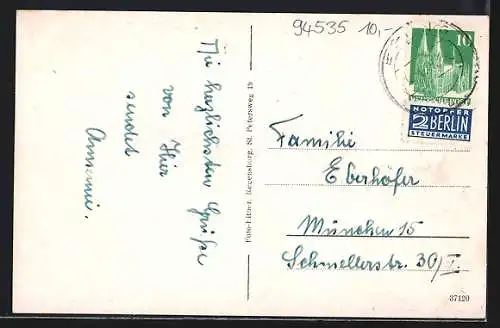 94535 10,-
10
NOTOPFER
2 BERLIN
STEUERMARKE
Die herzlichsten Grüße
von Hier
sendet
Annemie.
Foto-Litho-r. Regensburg, St. Petersweg 15
Familie
Eberhöfer
München 15
Schmellerstr. 30/I.
37120